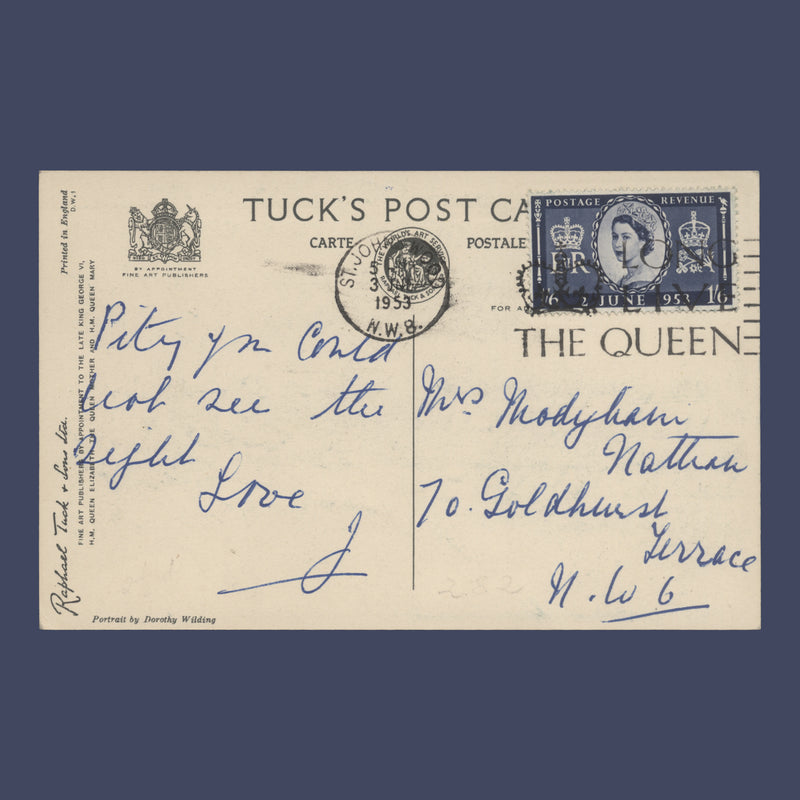 TUCK'S POST CA
CARTE POSTALE
BY APPOINTMENT
FINE ART PUBLISHERS
Printed in England
D.W.1
Raphael Tuck & Sons Ltd.
FINE ART PUBLISHERS BY APPOINTMENT TO THE LATE KING GEORGE VI,
H.M. QUEEN ELIZABETH THE QUEEN MOTHER AND H.M. QUEEN MARY
Portrait by Dorothy Wilding
ST. JOHN'S WOOD
1953
N.W.8.
THE WORLD'S ART SERVICE
RAPHAEL TUCK & SONS
FOR A
POSTAGE REVENUE
E II R
1/6 2 JUNE 1953 1/6
LONG
LIVE
THE QUEEN
Pity you could
not see the
Sight
Love
J
Mrs Modyham
Nathan
70. Goldhurst
Terrace
N.W 6